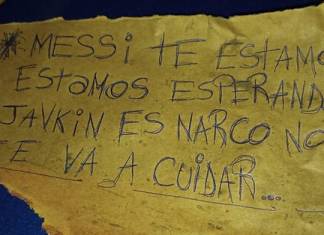 * MESSi TE ESTAMO
ESTAMOS ESPERAND
JAVKIN ES NARCO NO
TE VA A CUIDAR...